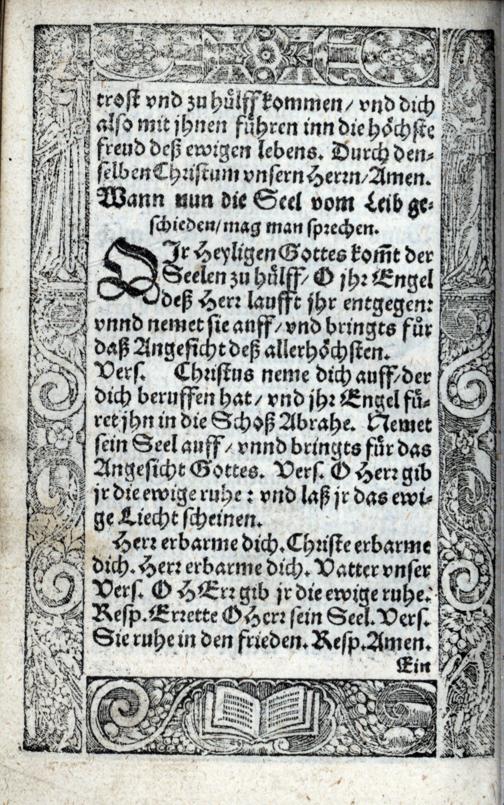 trost vnd zu hülff kommen / vnd dich
also mit jhnen führen inn die höchste
freud deß ewigen lebens. Durch den-
selben Christum vnsern Herrn / Amen.
Wann nun die Seel vom Leib ge-
schieden / mag man sprechen.
O Ir Heyligen Gottes kom̃t der
Seelen zu hülff / O jhr Engel
deß Herr laufft jhr entgegen:
vnnd nemet sie auff / vnd bringts für
daß Angesicht deß allerhöchsten.
Vers. Christus neme dich auff / der
dich beruffen hat / vnd jhr Engel fü-
ret jhn in die Schoß Abrahe. Nemet
sein Seel auff / vnnd bringts für das
Angesicht Gottes. Vers. O Herr gib
jr die ewige ruhe: vnd laß jr das ewi-
ge Liecht scheinen.
Herr erbarme dich. Christe erbarme
dich. Herr erbarme dich. Vatter vnser
Vers. O HErr gib jr die ewige ruhe.
Resp. Errette O Herr sein Seel. Vers.
Sie ruhe in den frieden. Resp. Amen.
Ein